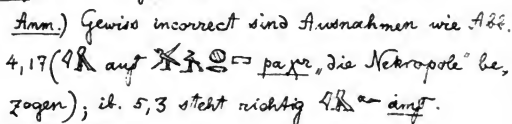 Anm.) Gewiss incorrect sind Ausnahmen wie Abb.
4,17 ( auf pa ẖr „die Nekropole“ be,
zogen); ib. 5,3 steht richtig imf.